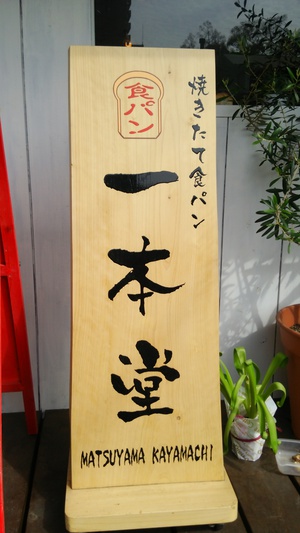 焼きたて食パン
食パン
一本堂
MATSUYAMA KAYAMACHI